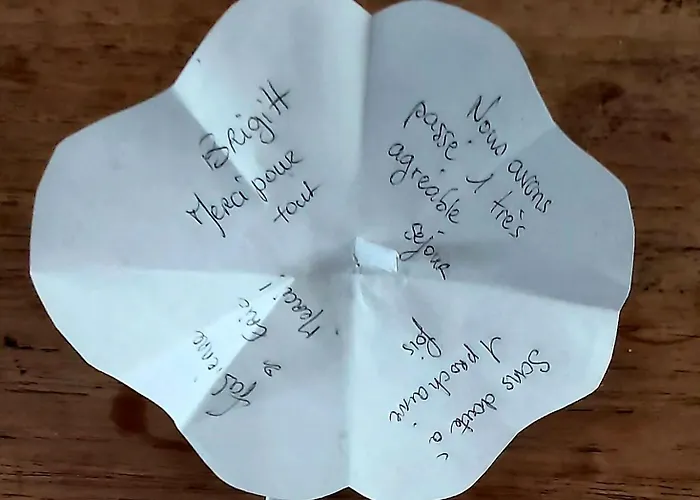 Brigitt
Merci pour
tout
Nous avons
passé 1 très
agréable
séjour
Sans doute à
1 prochaine
fois
Merci !
Eric
&
Fabienne